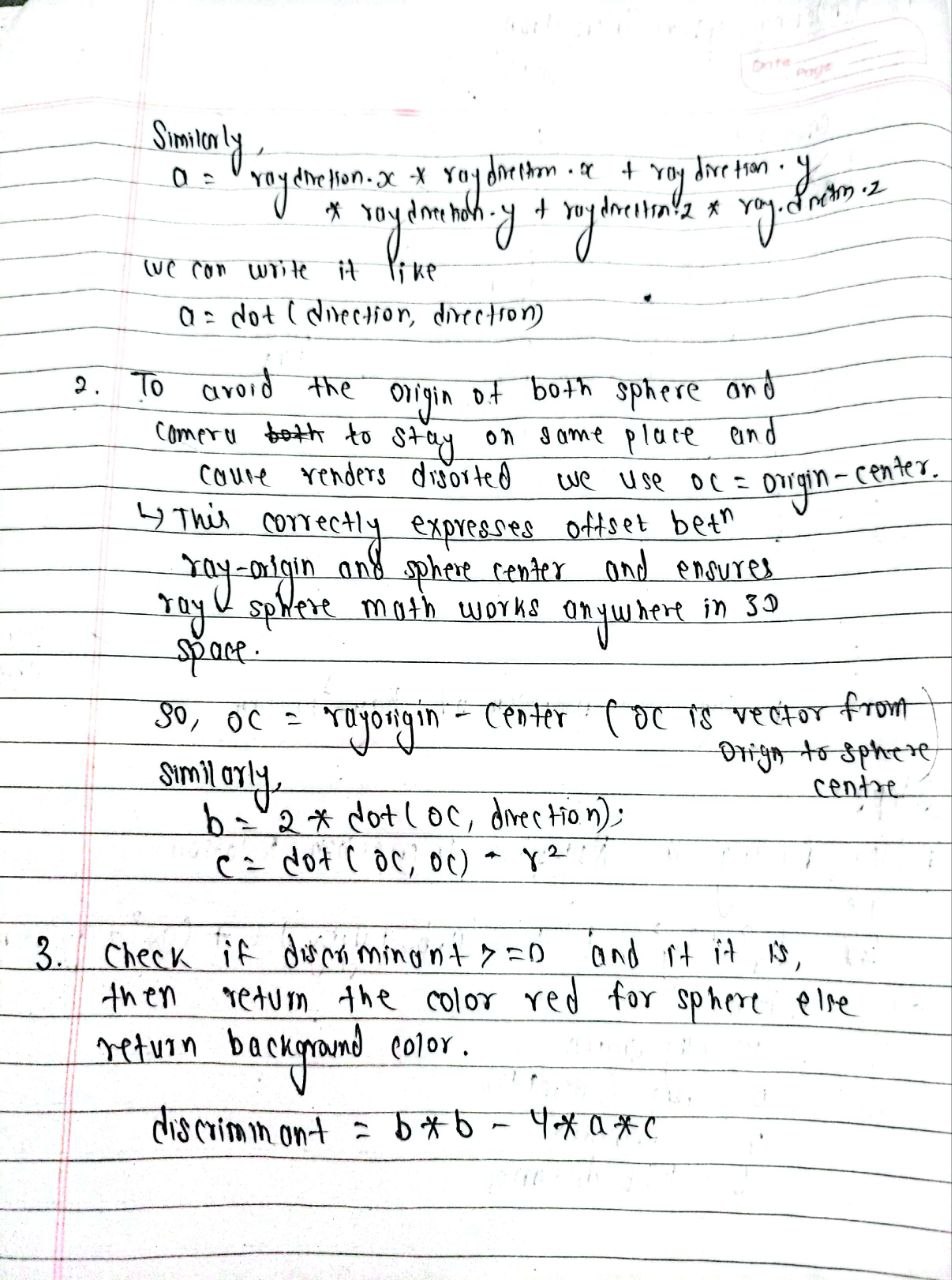 Date
Page
Similarly,
a = raydirection.x * raydirection.x + raydirection.y
* raydirection.y + raydirection.z * ray.direction.z
we can write it like
a = dot (direction, direction)
2. To avoid the origin of both sphere and
camera both to stay on same place and
cause renders disorted we use oc = origin-center.
↳ This correctly expresses offset betn
ray-origin and sphere center and ensures
ray sphere math works anywhere in 3D
space.
So, oc = rayorigin - center (oc is vector from
Orign to sphere
centre
similarly,
b = 2 * dot(oc, direction);
c = dot (oc, oc) - r²
3. Check if discriminant >=0 and if it is,
then return the color red for sphere else
return background color.
discriminant = b*b - 4*a*c